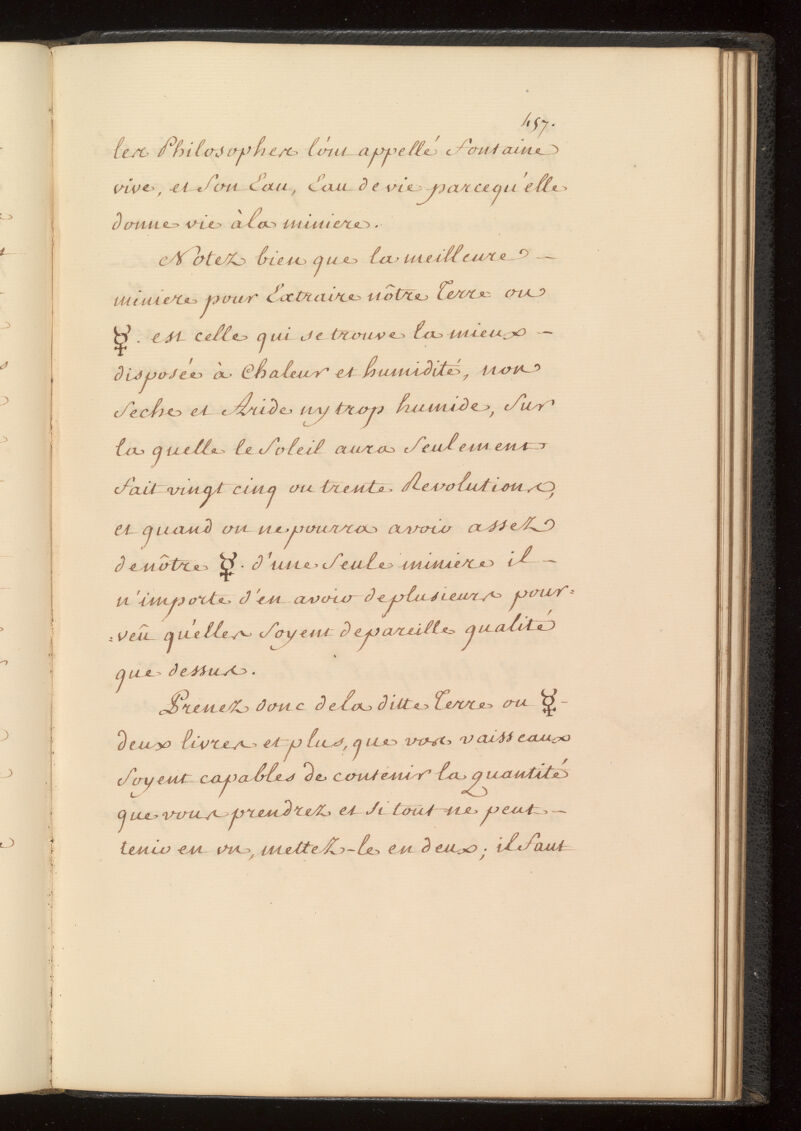 457.
les Philosophes l'ont appellé Fontaine
vive, et Son Eau, Eau de vie parcequ'elle
donne vie à la miniere.
Notez bien que la meilleure –
miniere pour Extraire nôtre Terre ou
☿. est celle qui se trouve la mieux –
disposée à Chaleur et humidité, non
Seche et Aride ny trop humide, Sur
la quelle le Soleil aura Seulement
fait vingt cinq ou trente Revolutions,
et quand on ne pourra avoir assez
de nôtre ☿. d'une Seule miniere il –
n'importe d'en avoir de plusieurs pour=
=veû qu'elles Soyent de pareille qualité
que dessus.
Prenez donc de la ditte Terre ou ☿ –
deux livres et plus, que vos vaisseaux
Soyent capables de contenir la quantité
que vous prendrez et Si tout ne peut –
tenir en vn, mettez-le en deux; il faut